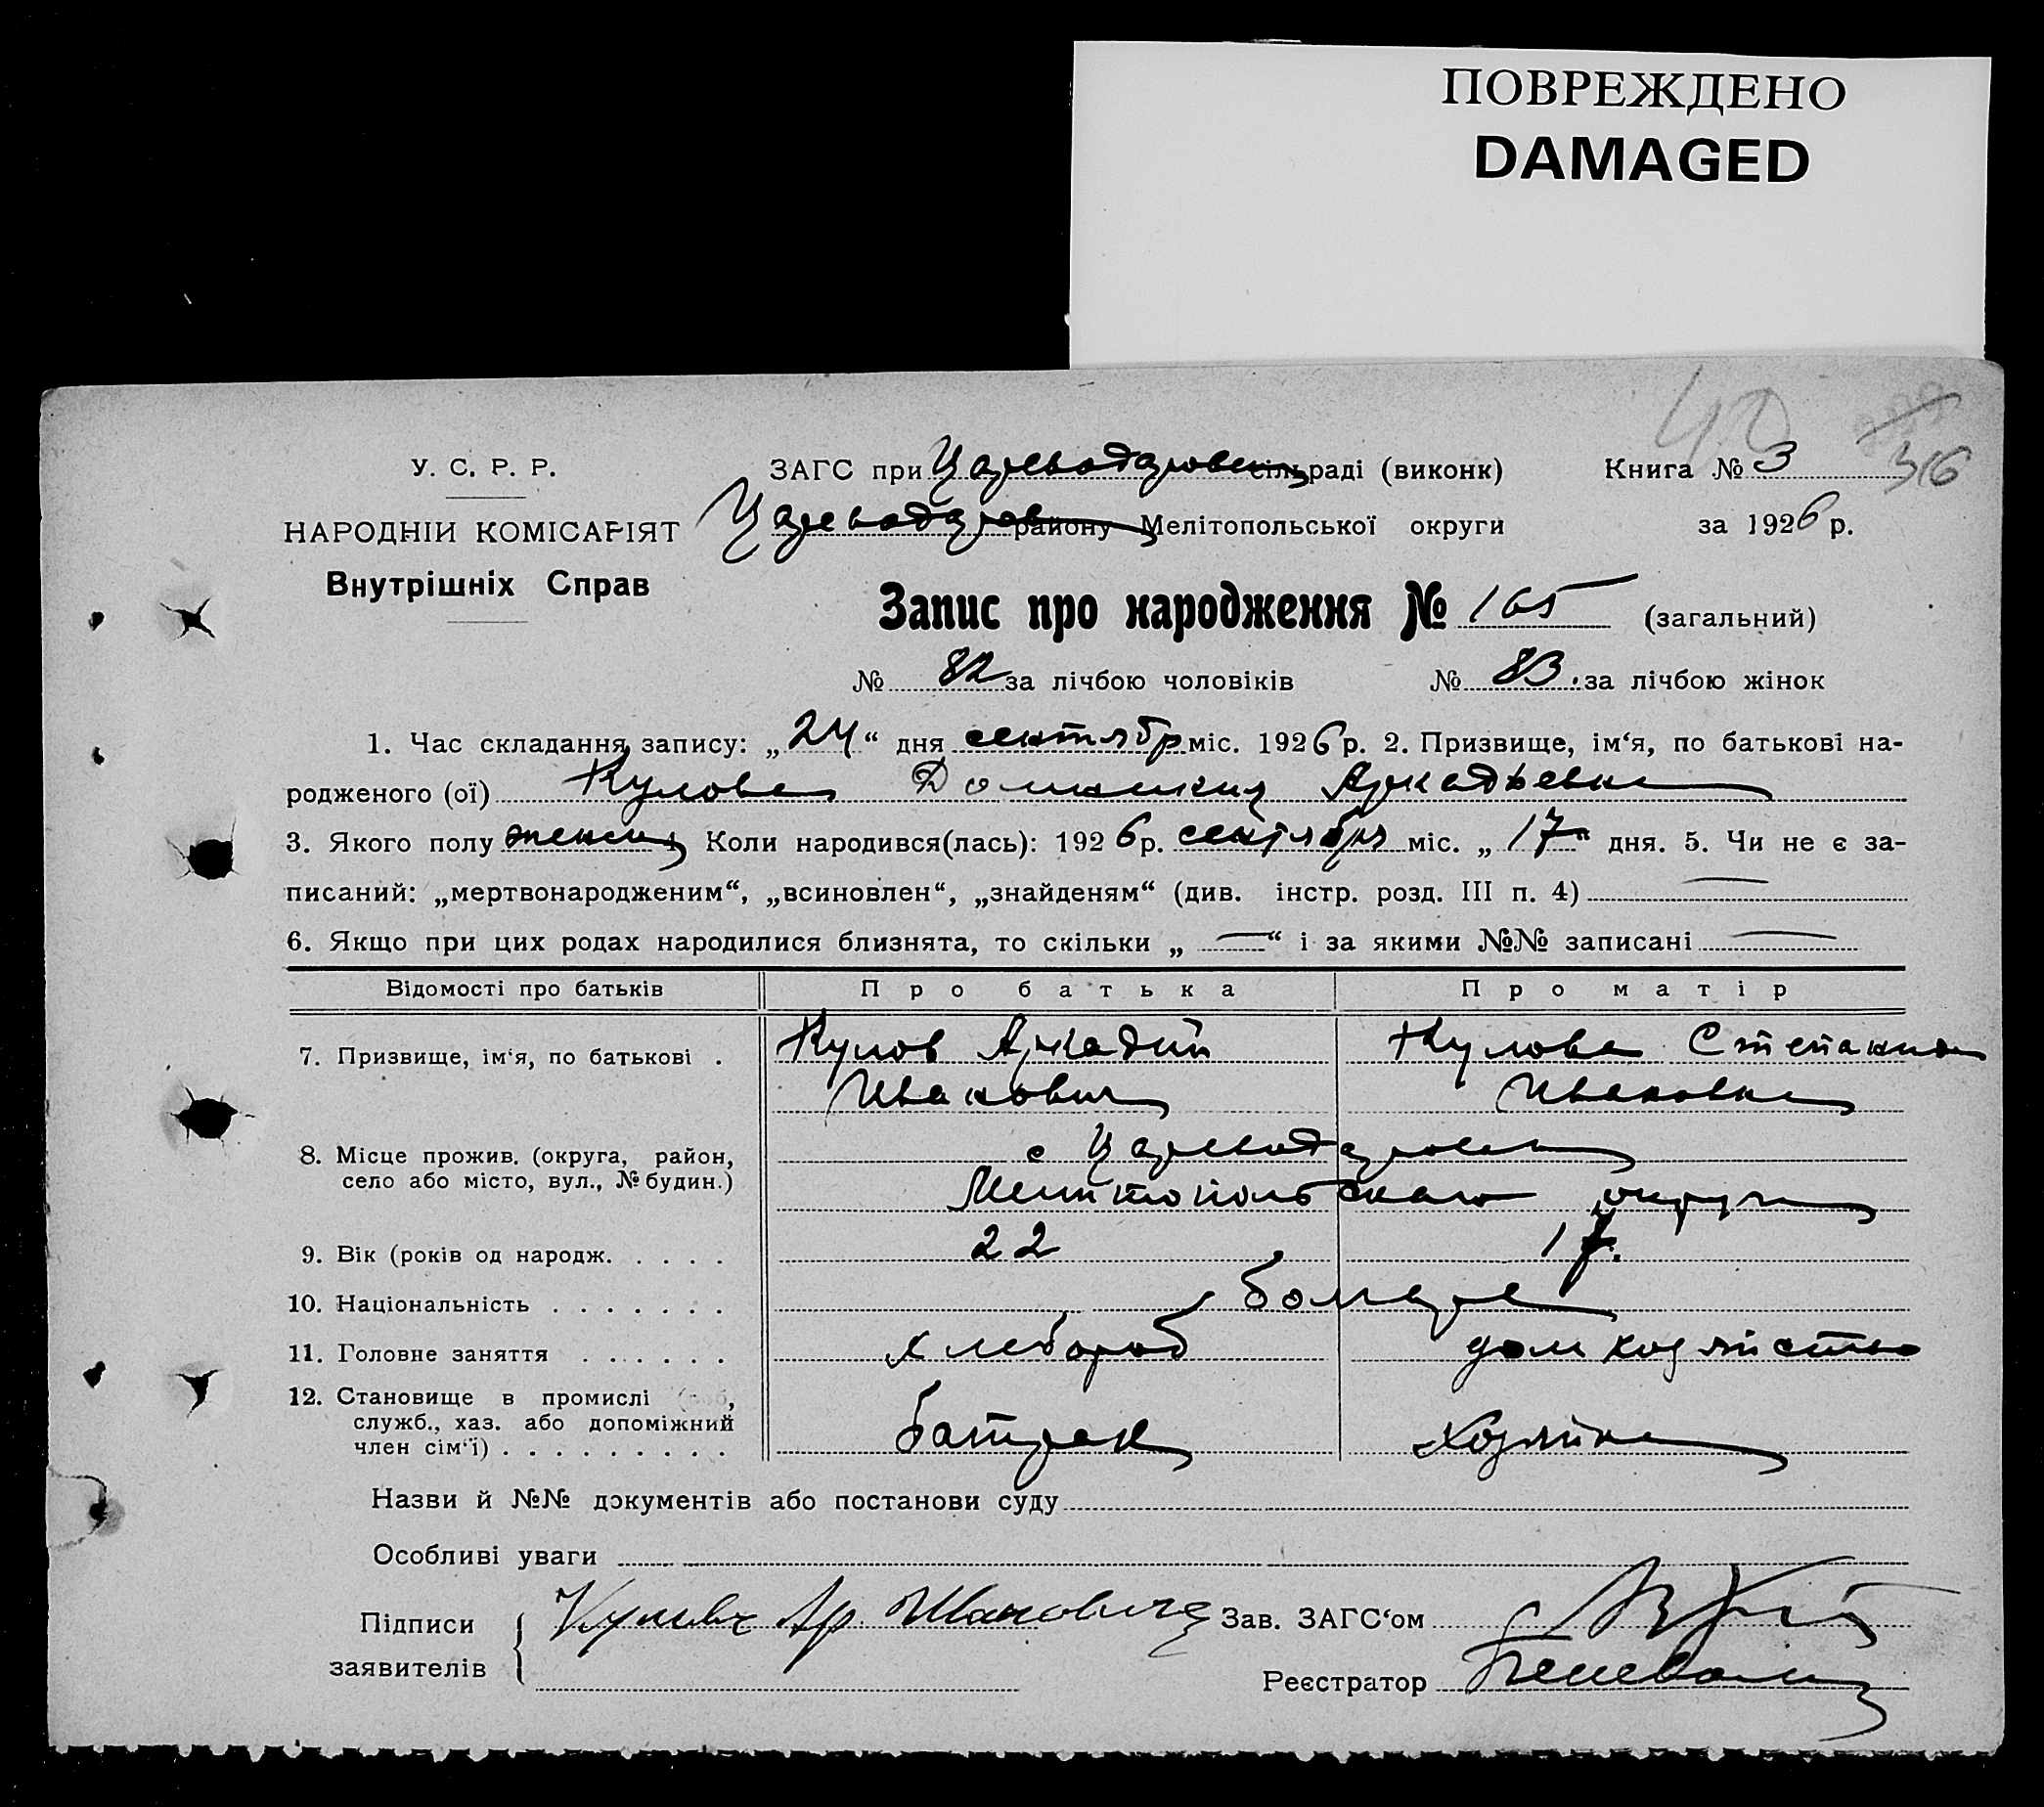 ПОВРЕЖДЕНО
DAMAGED
40
316
У. С. Р. Р.
НАРОДНІИ КОМІСАРІЯТ
Внутрішніх Справ
ЗАГС при Царевода́ровск сільраді (виконк)
району Мелітопольської округи
Книга № 3
за 1926 р.
Запис про народження № 165 (загальний)
№ 82 за лічбою чоловіків № 83. за лічбою жінок
1. Час складання запису: „24“ дня сентябр міс. 1926 р. 2. Призвище, ім‘я, по батькові на-
родженого (ої) Кулова Домникия Аркадьевна
3. Якого полу женск Коли народився(лась): 1926 р. сентября міс. „17“ дня. 5. Чи не є за-
писаний: „мертвонародженим“, „всиновлен“, „знайденям“ (див. інстр. розд. III п. 4) —
6. Якщо при цих родах народилися близнята, то скільки „—“ і за якими №№ записані —
Відомості про батьків Про батька Про матір
7. Призвище, ім‘я, по батькові . Кулов Аркадий Кулова Степанида
Иванович Ивановна
8. Місце прожив. (округа, район,
село або місто, вул., № будин.)
с Царевода́ровка
Мелитопольскаго округа
9. Вік (років од народж. . . . . 22 17.
10. Національність . . . . . . . болгаре
11. Головне заняття . . . . . . хлебороб дом хозяйство
12. Становище в промислі (роб,
служб., хаз. або допоміжний
член сім‘ї) . . . . . . . . . батрак Хозяйка
Назви й №№ документів або постанови суду
Особливі уваги
Підписи
заявителів
Ар. Иванович
Зав. ЗАГС‘ом
Реєстратор